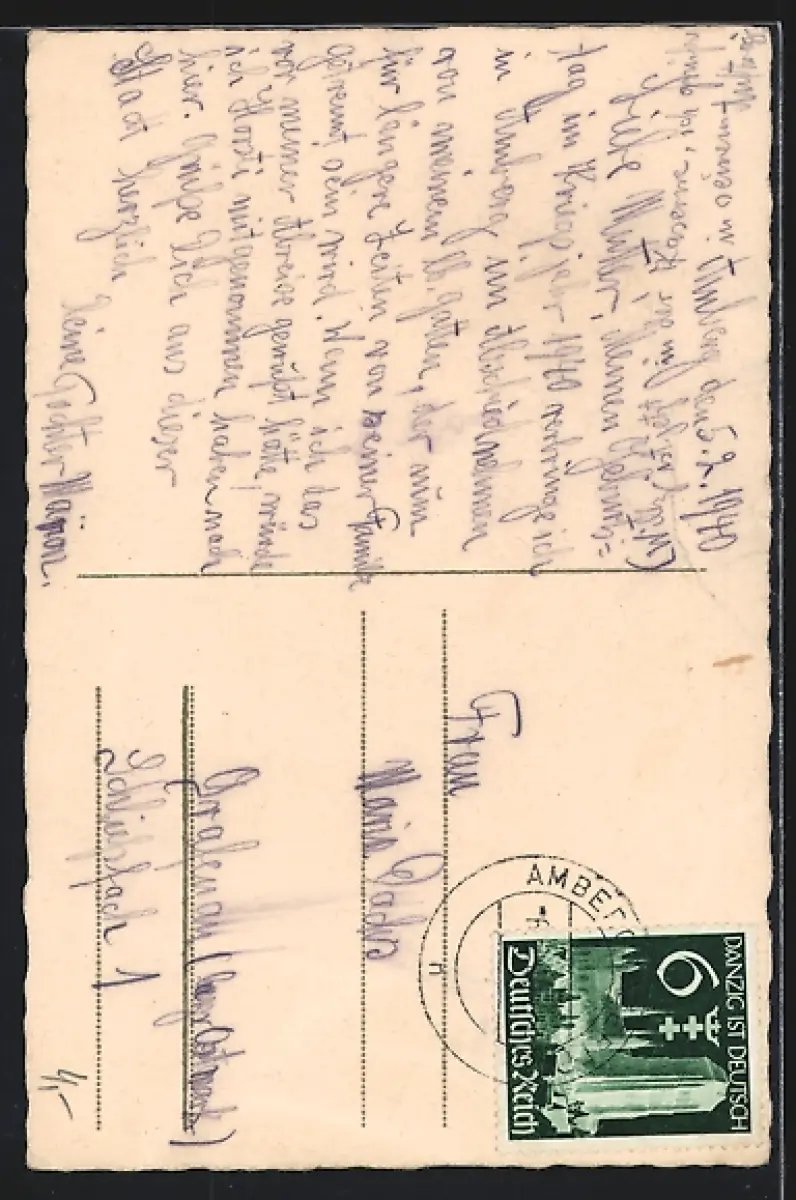 Amberg den 5.2.1940
(Willi ist jetzt in der Kaserne, ich
Liebe Mutter! Meinen
tag im Kriegsjahr 1940 verbringe ich
in Amberg um Abschied nehmen
von meinem lb. Gatten, der nun
für längere Zeiten von seiner Familie
getrennt sein wird. Wenn ich das
vor meiner Abreise gewußt hätte, würde
ich Horsti mitgenommen haben nach
hier. Grüße Dich aus dieser
Stadt herzlich
Deine Tochter
Frau
Maria
Grafenau (bayr. Ostmark)
Schließfach 1
4,-
AMBERG
DANZIG IST DEUTSCH
6
Deutsches Reich